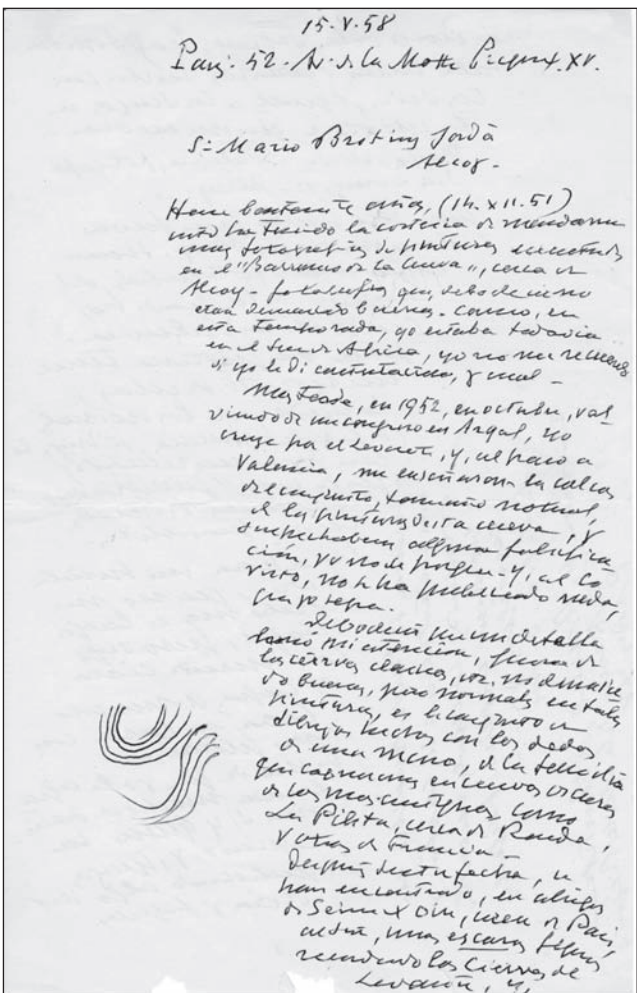 15-V-58
Paris. 52. Av. de la Motte Picquet. XV.
Sr. Mario Brotons Jordá
Alcoy-
Hace bastante años, (14.XII.51)
ha tenido la cortesia de mandarme
unas fotografias de pinturas
en el "Barranco de la Cueva", cerca de
Alcoy - fotografias, que, debo decir no
eran demasiado buenas. Como, en
esta temporada, yo estaba todavia
en el Sur de Africa, yo no me recuerdo
si yo le di contestacion, y cual-
Mas tarde, en 1952, en octubre, vol-
viendo de un congreso en Argel, yo
por el Levante, y, al paso a
Valencia, me enseñaron los calcos
del conjunto, tamaño normal,
de las pinturas de esta cueva, y
sospechaban alguna falsifica
ción, yo no sé porque - y, al
visto, no se ha publicado nada,
que yo sepa.
Debo decir que un detalle
llamó mi atencion, fuera de
los ciervos no demasia
do buenos, pero normales en tales
pinturas, es el conjunto de
dibujos hechos con los dedos
de una mano, de la
que en cuevas
de las mas antiguas, como
La Pileta, cerca de Ronda,
y otras de Francia-
Despues de esta fecha, se
han encontrado, en abrigos
de Seine et Oise, cerca de Paris,
unas escasas figuras
recordando los Ciervos de
Levante, y,